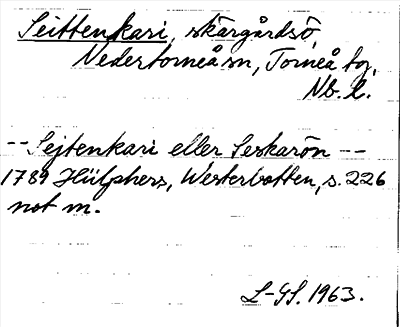 Seittenkari, skärgårdsö,
Nedertorneå sn, Torneå tg,
Nb. l.
-- Sejtenkari eller Seskarön --
1789 Hülphers, Westerbotten, s. 226
not m.
L-GL. 1963.